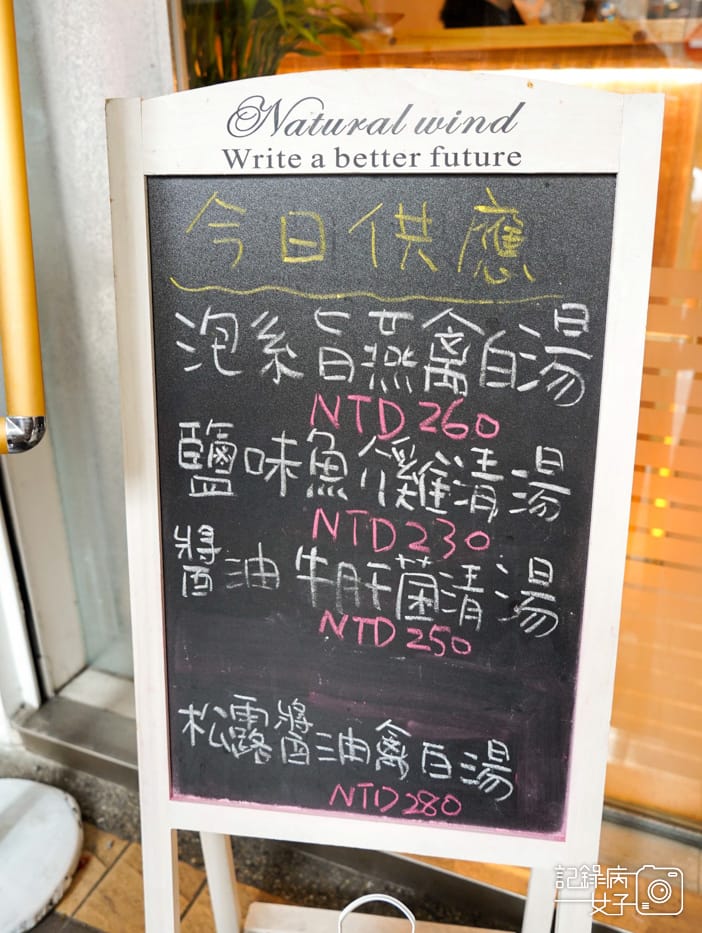 Natural wind
Write a better future
今日供應
泡系旨燕禽白湯
NTD260
鹽味魚介雞清湯
NTD230
醬油牛肝菌清湯
NTD250
松露醬油禽白湯
NTD280
記錄病
女子